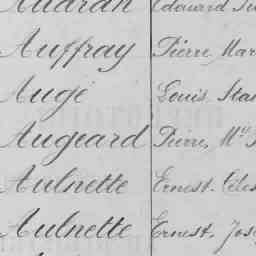 Audran Edouard
Auffray Pierre Mar
Augé Louis Stan
Augeard Pierre, M.
Aulnette Ernest. Céles
Aulnette Ernest, Jos